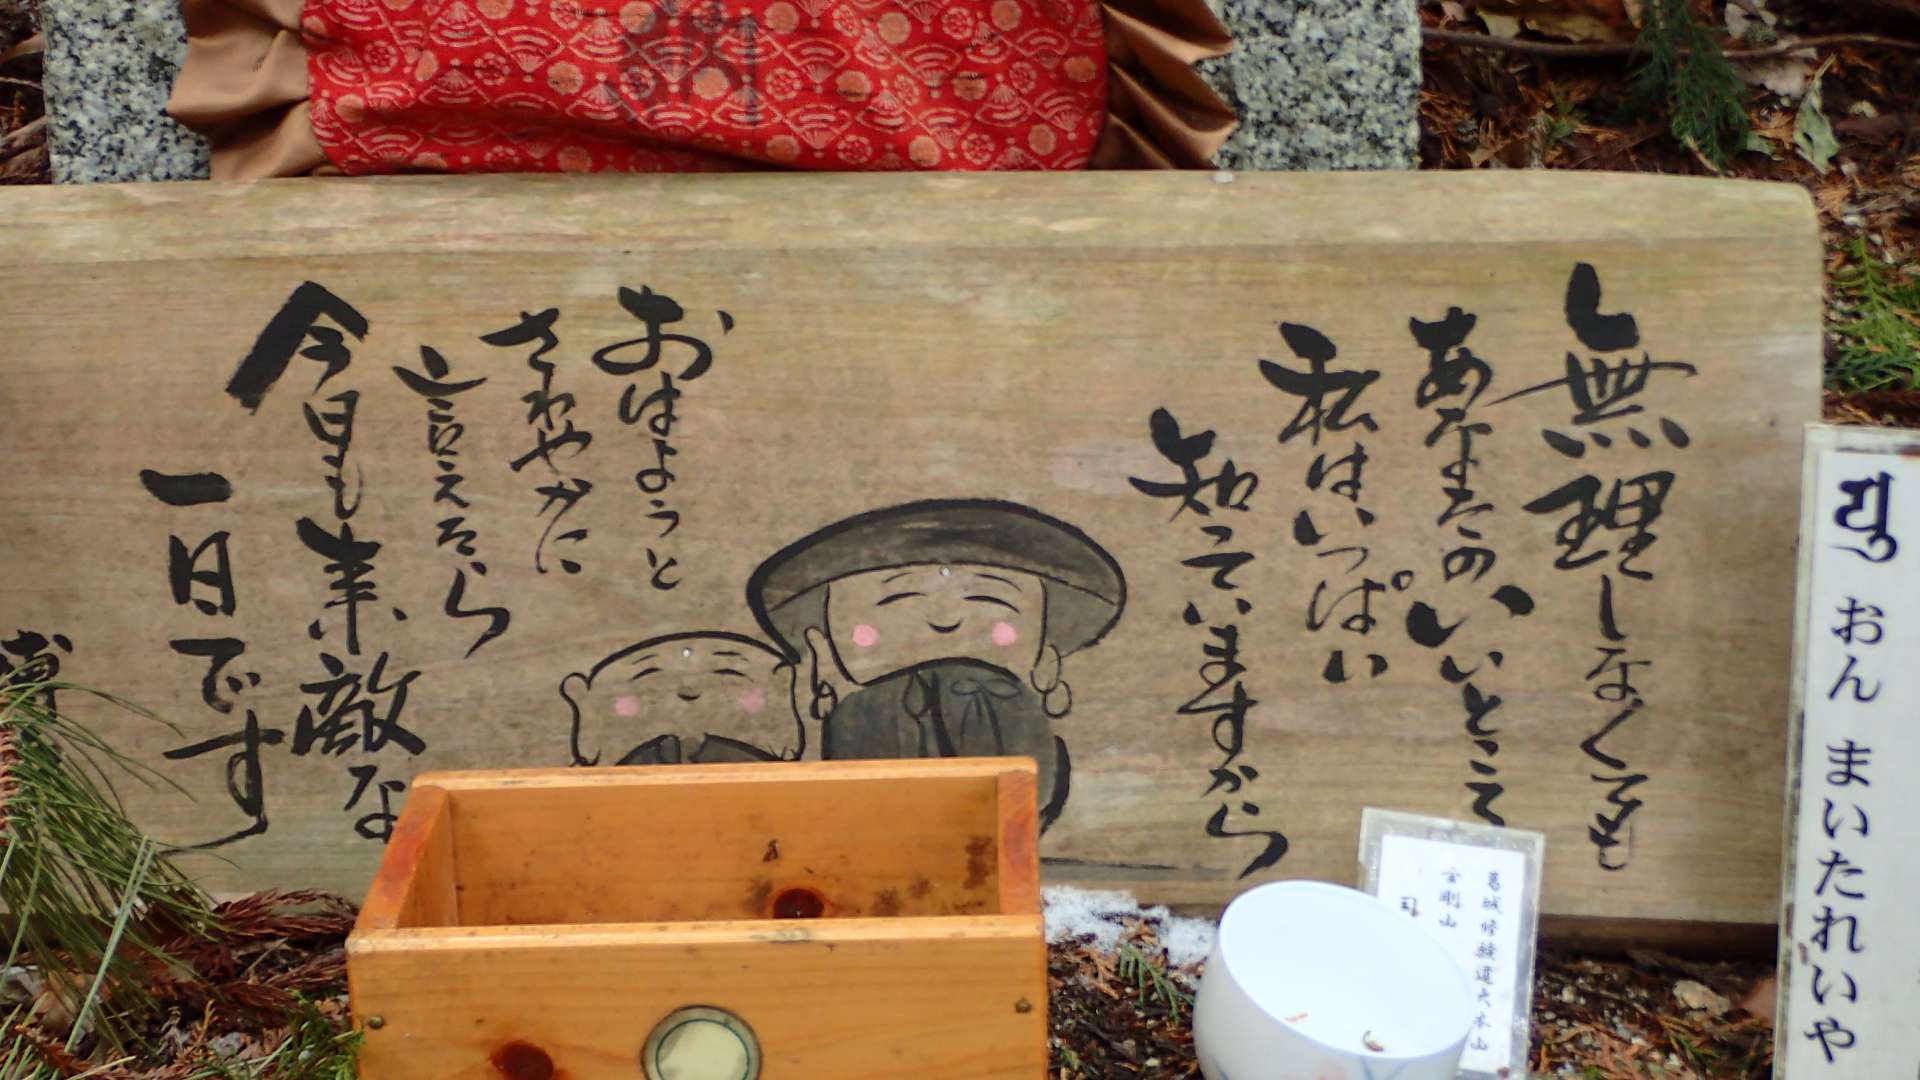 無理しなくても
あなたのいいとこて
私はいっぱい
知っていますから
おはようと
さわやかに
言えたら
今日も素敵な
一日です
博
おん まいたれいや
葛城修験道大本山
金剛山